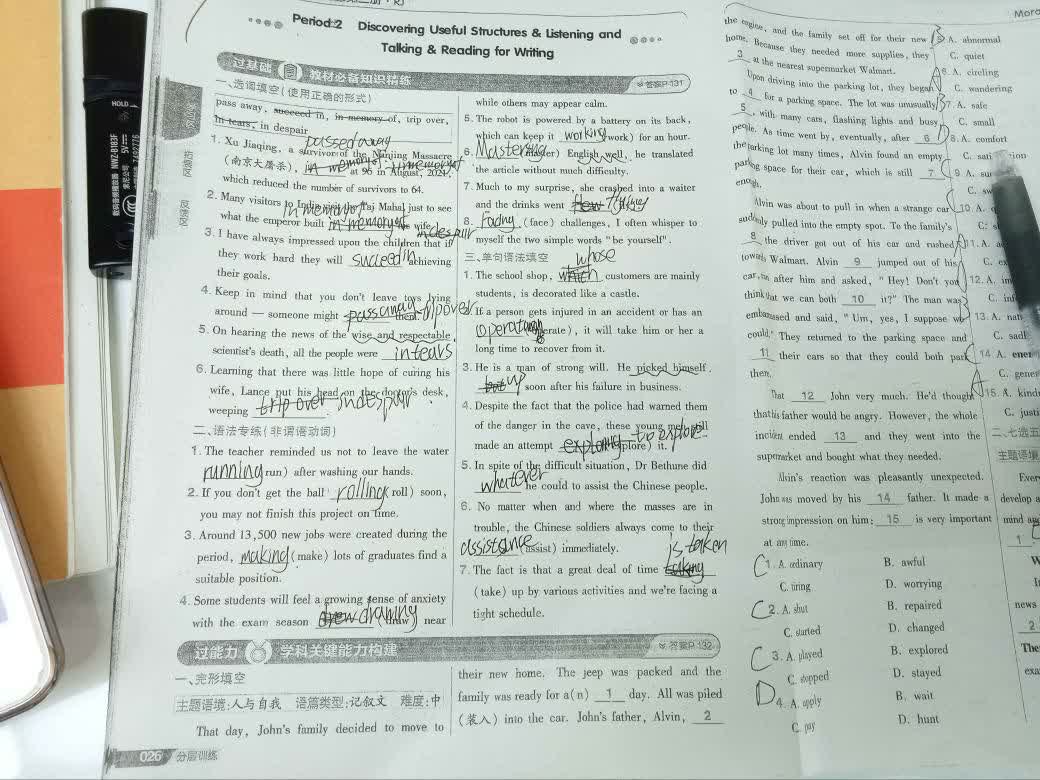 Period 2 Discovering Useful Structures & Listening and
Talking & Reading for Writing
过基础 教材必备知识精练
答案P131
一、选词填空(使用正确的形式)
pass away, succeed in, in memory of, trip over,
in tears, in despair
passed away
1. Xu Jiaqing, a survivor of the Nanjing Massacre
(南京大屠杀), at 96 in August, 2021,
which reduced the number of survivors to 64.
2. Many visitors to India visit the Taj Mahal just to see
what the emperor built in memory of wife.
in despair
3. I have always impressed upon the children that if
they work hard they will succeed in achieving
their goals.
4. Keep in mind that you don't leave toys lying
around — someone might them.
5. On hearing the news of the wise and respectable
scientist's death, all the people were in tears.
6. Learning that there was little hope of curing his
wife, Lance put his head on the doctor's desk,
weeping trip over in despair.
二、语法专练(非谓语动词)
1. The teacher reminded us not to leave the water
running (run) after washing our hands.
2. If you don't get the ball rolling (roll) soon,
you may not finish this project on time.
3. Around 13,500 new jobs were created during the
period, making (make) lots of graduates find a
suitable position.
4. Some students will feel a growing sense of anxiety
with the exam season drawing (draw) near
while others may appear calm.
5. The robot is powered by a battery on its back,
which can keep it working (work) for an hour.
6. Mastering (master) English well, he translated
the article without much difficulty.
7. Much to my surprise, she crashed into a waiter
and the drinks went flying
8. Facing (face) challenges, I often whisper to
myself the two simple words "be yourself".
三、单句语法填空
whose
1. The school shop, which customers are mainly
students, is decorated like a castle.
2. If a person gets injured in an accident or has an
(operate), it will take him or her a
long time to recover from it.
3. He is a man of strong will. He picked himself
up soon after his failure in business.
4. Despite the fact that the police had warned them
of the danger in the cave, these young men still
made an attempt exploring to explore (explore) it.
5. In spite of the difficult situation, Dr Bethune did
whatever he could to assist the Chinese people.
6. No matter when and where the masses are in
trouble, the Chinese soldiers always come to their
assistance (assist) immediately.
is taken
7. The fact is that a great deal of time taking
(take) up by various activities and we're facing a
tight schedule.
过能力 学科关键能力构建
答案P132
一、完形填空
主题语境:人与自我 语篇类型:记叙文 难度:中
That day, John's family decided to move to
their new home. The jeep was packed and the
family was ready for a(n) 1 day. All was piled
(装入) into the car. John's father, Alvin, 2
026 分层训练
the engine, and the family set off for their new
home. Because they needed more supplies, they
3 at the nearest supermarket Walmart.
Upon driving into the parking lot, they began
to 4 for a parking space. The lot was unusually
5, with many cars, flashing lights and busy
people. As time went by, eventually, after 6
the parking lot many times, Alvin found an empty
parking space for their car, which is still 7
enough.
Alvin was about to pull in when a strange car
suddenly pulled into the empty spot. To the family's
8 the driver got out of his car and rushed
towards Walmart. Alvin 9 jumped out of his
car, ran after him and asked, "Hey! Don't you
think that we can both 10 it?" The man was
embarrassed and said, "Um, yes, I suppose we
could." They returned to the parking space and
11 their cars so that they could both park
then.
That 12 John very much. He'd thought
that his father would be angry. However, the whole
incident ended 13 and they went into the
supermarket and bought what they needed.
Alvin's reaction was pleasantly unexpected.
John was moved by his 14 father. It made a
strong impression on him: 15 is very important
at any time.
C 1. A. ordinary B. awful
C. tiring D. worrying
C 2. A. shut B. repaired
C. started D. changed
C 3. A. played B. explored
C. stopped D. stayed
D 4. A. apply B. wait
C. pay D. hunt
5. A. abnormal
C. quiet
6. A. circling
C. wandering
7. A. safe
C. small
8. A. comfort
14. A.
15. A. kind
二、七选五
主题语境